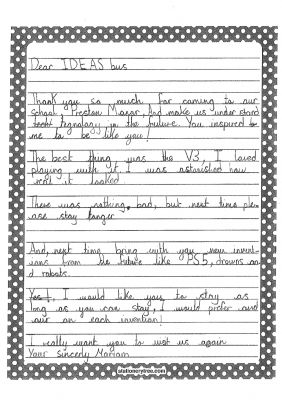 Dear IDEAS bus
Thank you so much for coming to our
school, Preston Manor, And make us under stand
tecnology in the future. You inspired
me to be like you!
The best thing was the V3, I loved
playing with it, I was astonished how
it looked
There was nothing bad, but next time ple-
ase stay longer
And, next time bring with you new inven-
tions from the future like PS5, drowns an-
d robots.
Yes!, I would like you to stay as
long as you can stay, I would prefer
hour on each invention!
I really want you to visit us again
Your sincerly Mariam
stationerytree.com